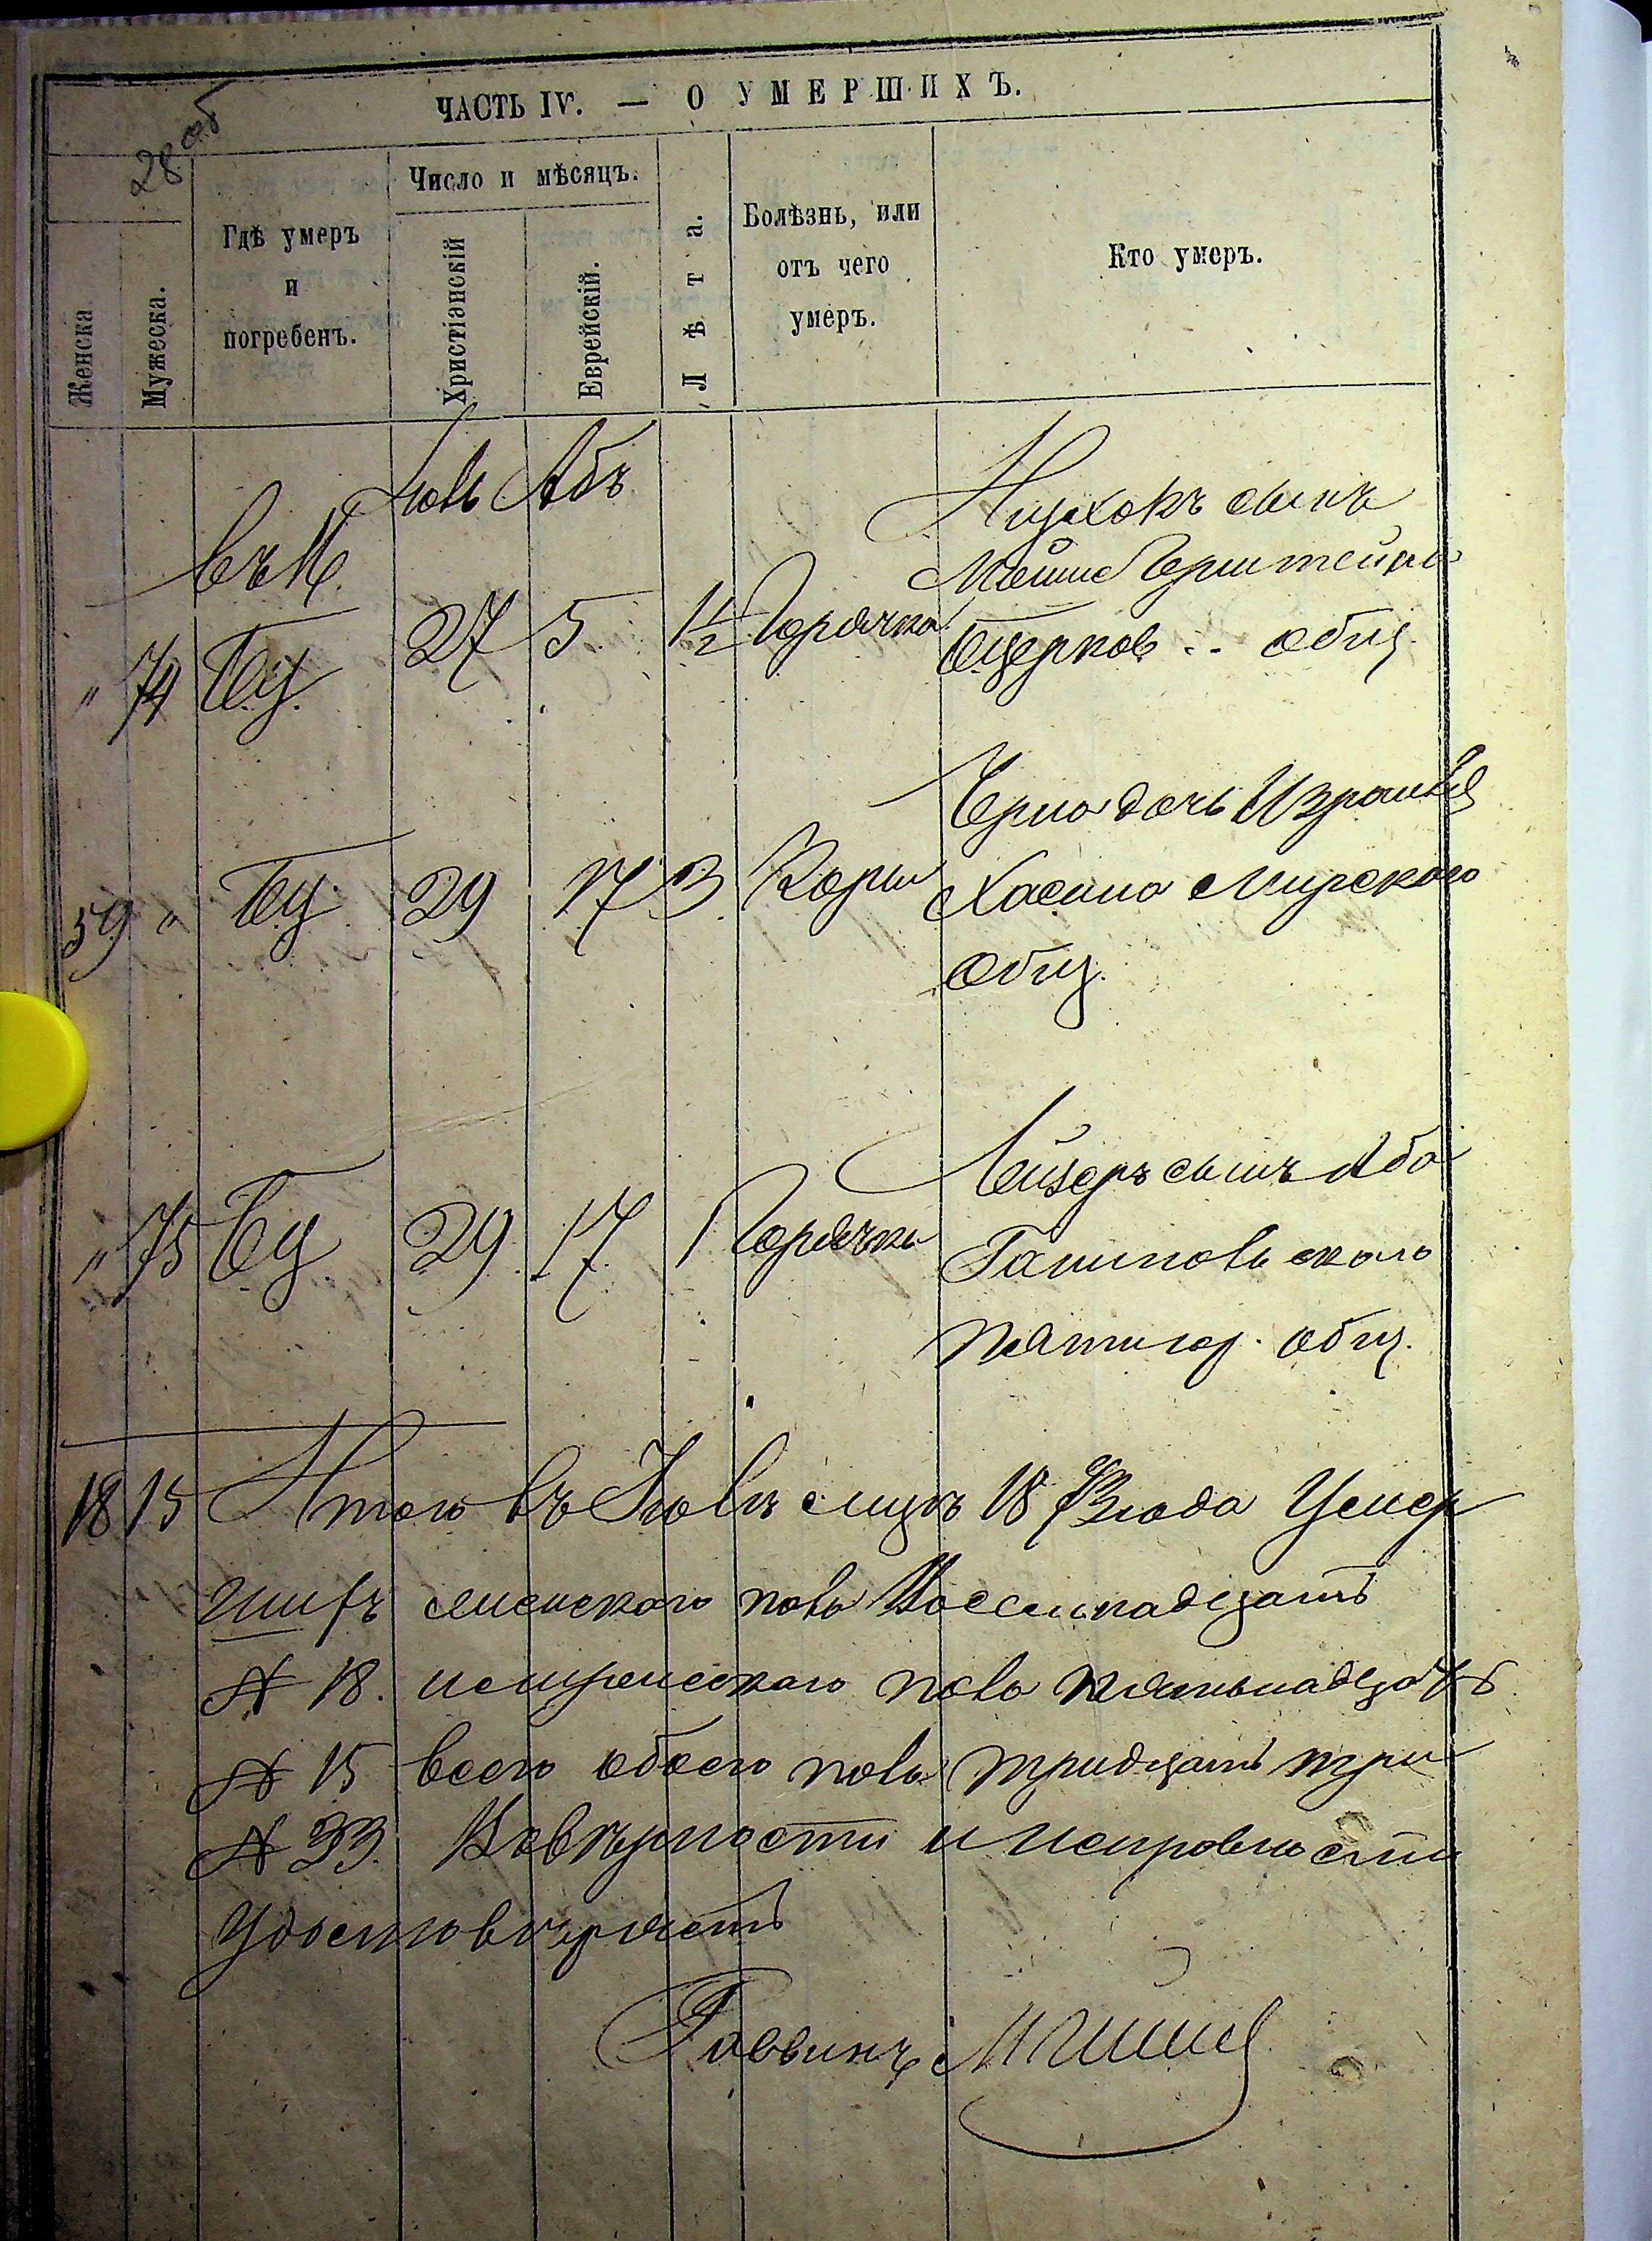 28 об
ЧАСТЬ IV. — О УМЕРШИХЪ.
Женска
Мужеска.
Гдѣ умеръ
и
погребенъ.
Число и мѣсяцъ.
Христіанскій
Еврейскій.
Лѣта.
Болѣзнь, или
отъ чего
умеръ.
Кто умеръ.
Іюль Абъ
въ М.
" 74 БЦ. 27 5 1 1/2 Горячка
сынъ
Мошко
БЦерков. общ.
59 " БЦ. 29 17 3 Корь
дочь Израиля
Мирскаго
общ.
" 75 БЦ 29 17 1 Горячки
Лейзеръ сынъ Аба
пятигор. общ.
18 15 Итого въ Іюлѣ мцѣ 1873 года Умер
шихъ женскаго пола Восемнадцать
№ 18. и мужескаго пола пятьнадцать
№ 15 всего обоего пола тридцать три
№ 33. Въ вѣрности и исправности
Удостовѣряетъ
Раввинъ